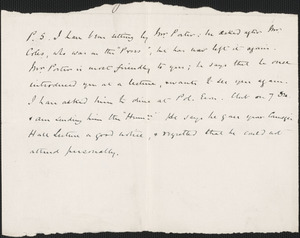 P.S. I have been sitting by Mr. Porter; he asked after Mr.
Coles, who was on the "Press", he has now left it again.
Mr. Porter is most friendly to you; he says that he once
introduced you at a lecture, & wants to see you again.
I have asked him to dine at Pol. Econ. Club on 7
& am sending him the He says he gave your
Hall Lecture a good notice, & regretted that he could not
attend personally.